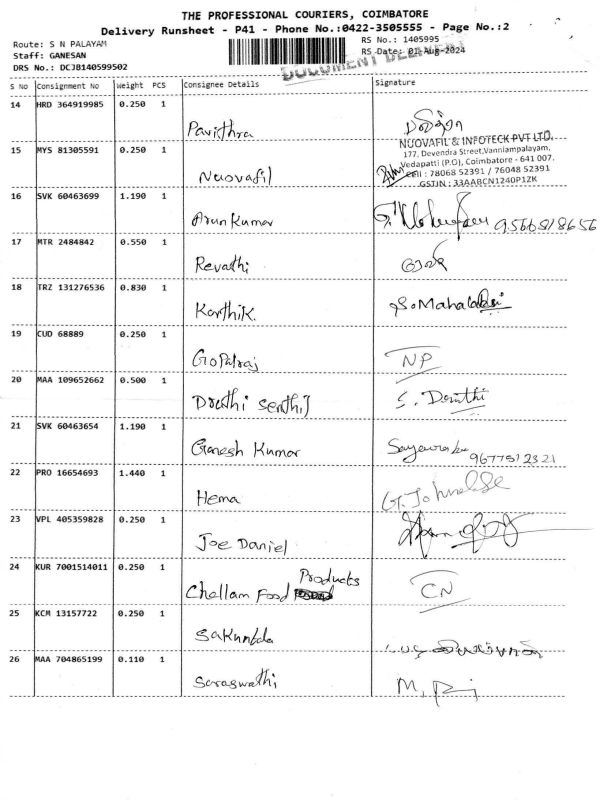 THE PROFESSIONAL COURIERS, COIMBATORE
Delivery Runsheet - P41 - Phone No.:0422-3505555 - Page No.:2
Route: S N PALAYAM
RS No.: 1405995
Staff: GANESAN
RS Date: 01-Aug-2024
DRS No.: DCJB140599502
DOCUMENT
S No Consignment No Weight PCS Consignee Details Signature
14 HRD 364919985 0.250 1
Pavisthra
NUOVAFIL & INFOTECK PVT LTD.
15 MYS 81305591 0.250 1
177, Devendra Street, Vanniampalayam,
Vedapatti (P.O), Coimbatore - 641 007.
Nuovafil
Cell : 78068 52391 / 76048 52391
GSTIN : 33AABCN1240P1ZK
16 SVK 60463699 1.190 1
Arun Kumar 9566518656
17 MTR 2484842 0.550 1
Revathi
18 TRZ 131276536 0.830 1
Karthik. S. Mahalakshmi
19 CUD 68889 0.250 1
Gopalraj NP
20 MAA 109652662 0.500 1
Druthi Senthil S. Druthi
21 SVK 60463654 1.190 1
Ganesh Kumar 9677512321
22 PRO 16654693 1.440 1
Hema
23 VPL 405359828 0.250 1
Joe Daniel
24 KUR 7001514011 0.250 1
Chellam Food Products CN
25 KCM 13157722 0.250 1
Sakuntala
26 MAA 704865199 0.110 1
Saraswathi